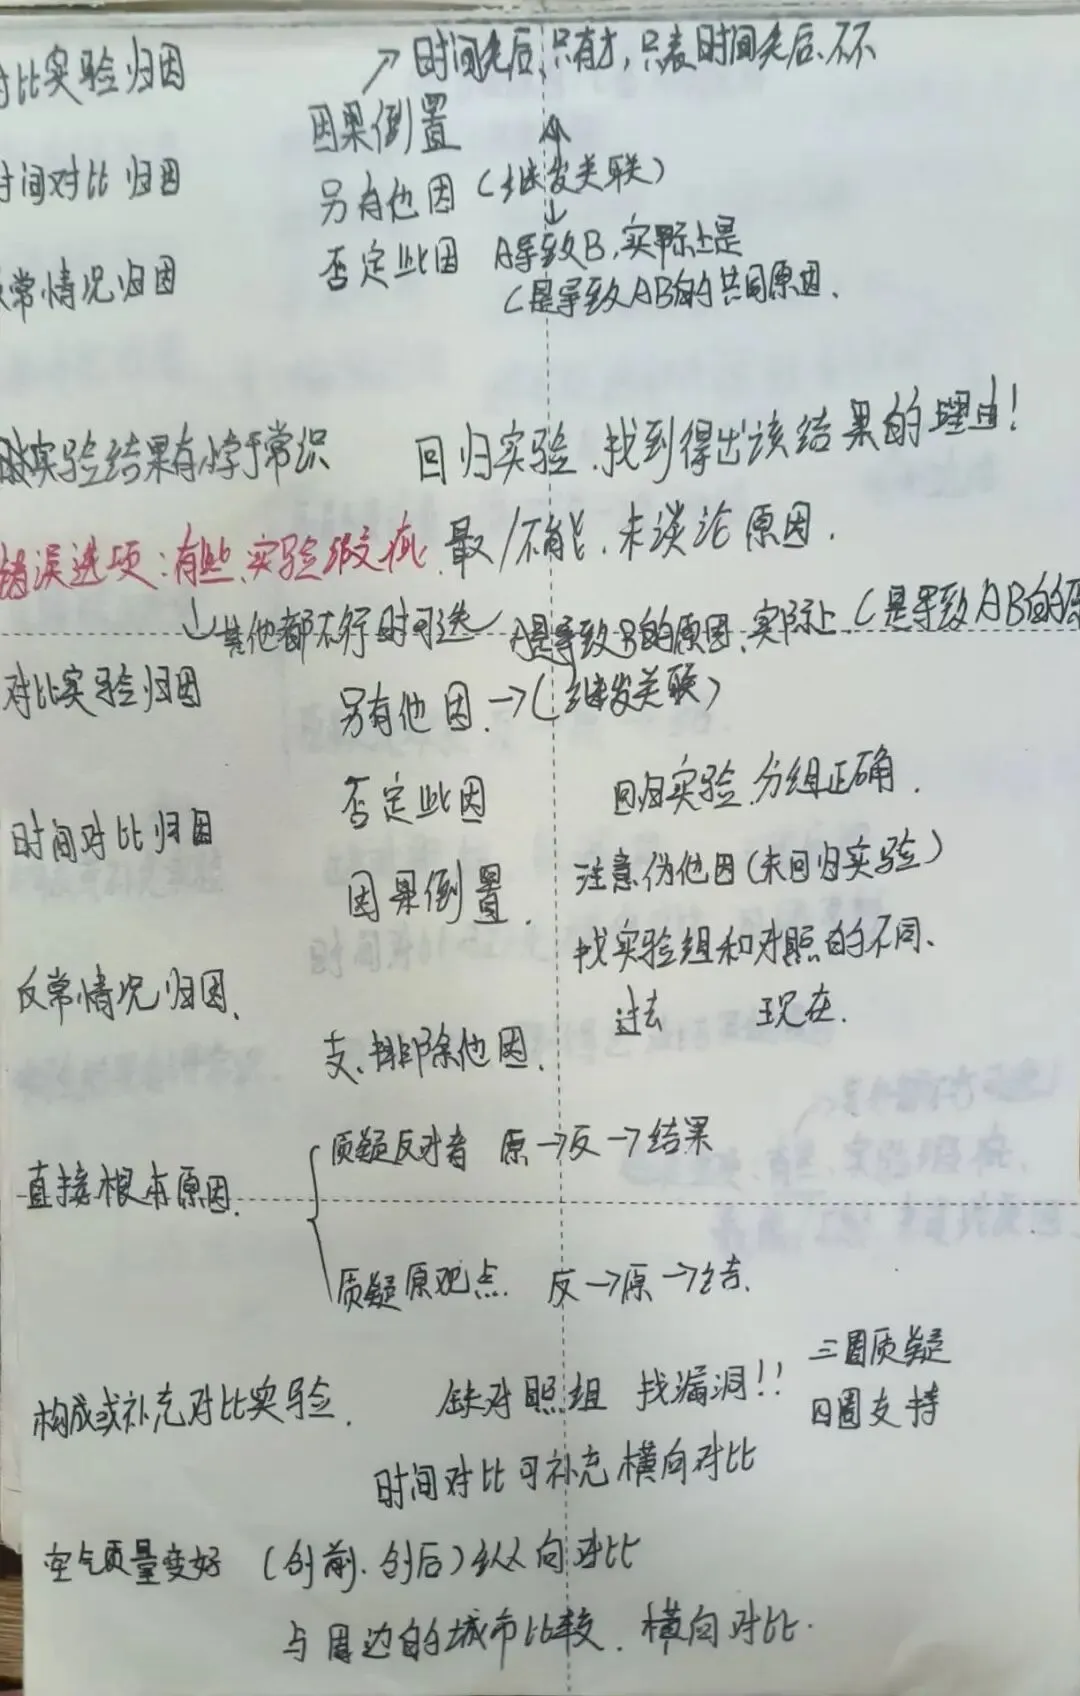 对比实验归因 ↗时间先后、只有才,只表时间先后、不
因果倒置
时间对比归因 另有他因(继发关联)
反常情况归因 否定此因 A导致B,实际上是
C是导致AB的共同原因.
实验结果有悖于常识 回归实验、找到得出该结果的理由!
错误选项:有些、实验瑕疵、最/不能、未谈论原因.
↓其他都不行时可选 A是导致B的原因、实际上C是导致AB的
对比实验归因 另有他因.→(继发关联)
否定此因 回归实验、分组正确.
时间对比归因
因果倒置. 注意伪他因(未回归实验)
找实验组和对照的不同、
反常情况归因、 过去 现在.
支、排除他因.
质疑反对者 原→反→结果
直接根本原因.
质疑原观点. 反→原→结.
三圈质疑
构成或补充对比实验. 缺对照组 找漏洞!! 四圈支持
时间对比可补充横向对比
空气质量变好 (创前、创后)纵向对比
与周边的城市比较.横向对比.